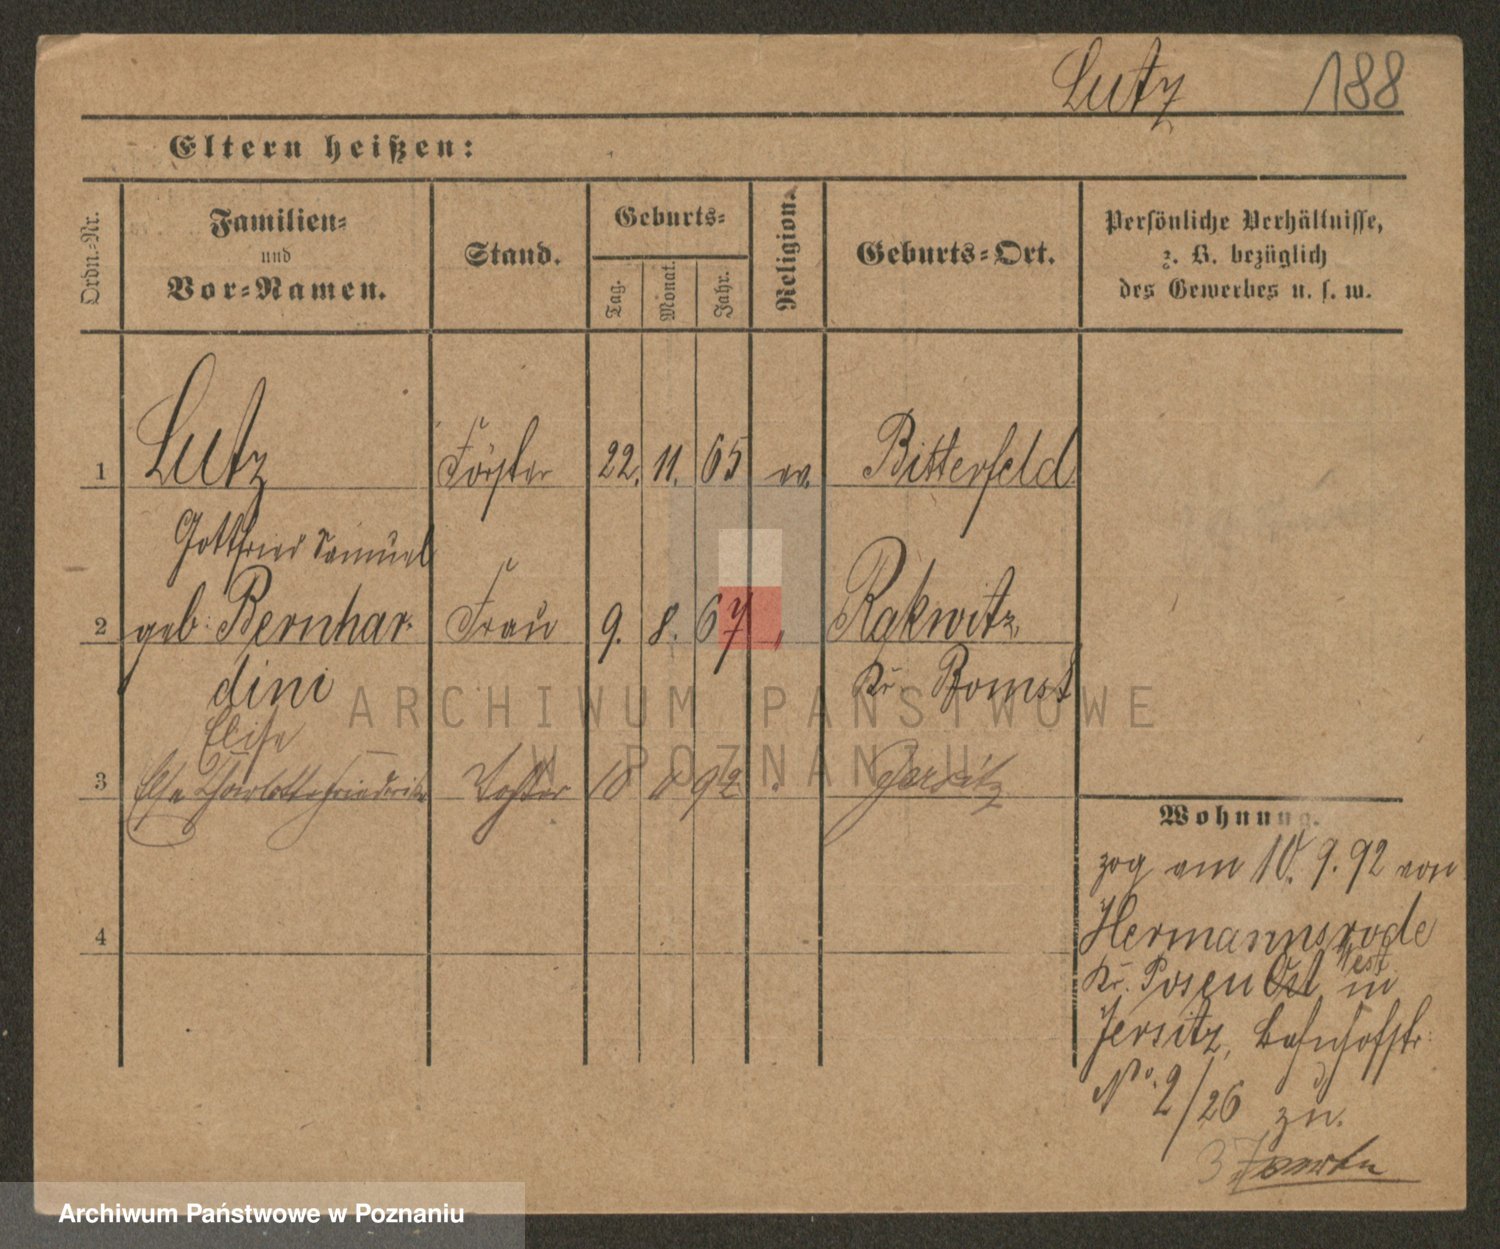 Lutz 188
Eltern heißen:
Ordn.-Nr.
Familien-
und
Vor-Namen.
Stand.
Geburts-
Tag.
Monat.
Jahr.
Religion.
Geburts-Ort.
Persönliche Verhältnisse,
z. B. bezüglich
des Gewerbes u. s. w.
1 Lutz Förster 22. 11. 65 ev. Bitterfeld
Gottfried Samuel
2 geb. Bernhar- Frau 9. 8. 67 " Rakwitz
dini Kr. Bomst
Elise
3 Else Charlotte Friederike Tochter 10 11 92 " Jersitz
4
Wohnung.
zog am 10. 9. 92 von
Hermannsrode
West
Kr. Posen Ost in
Jersitz, Bahnhofstr.
No. 2/26 zu.
3
ARCHIWUM PAŃSTWOWE
W POZNANIU
Archiwum Państwowe w Poznaniu